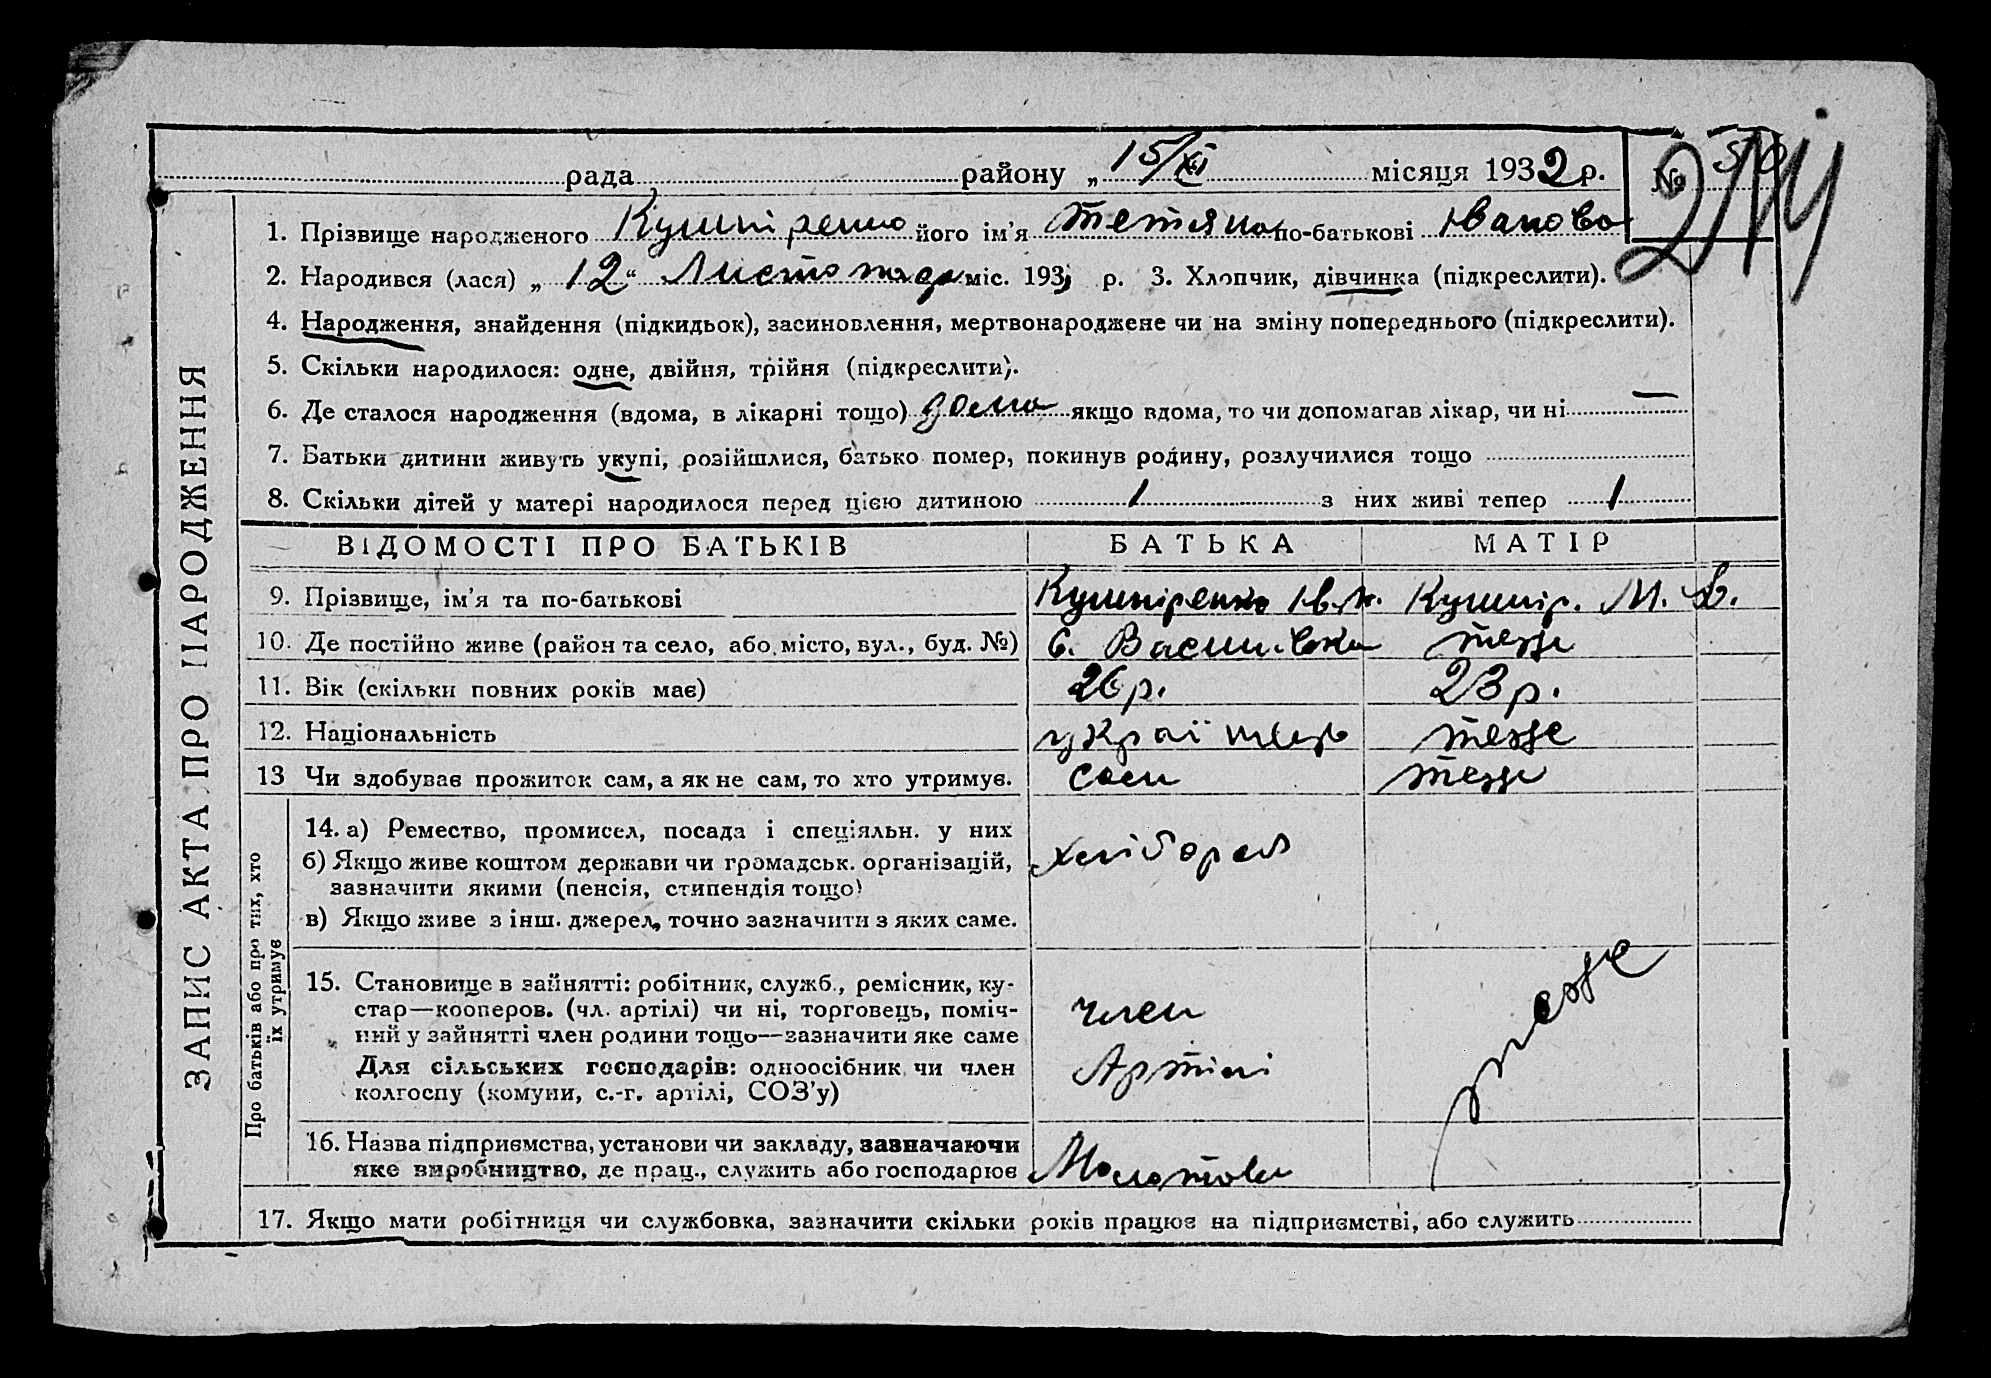 рада района „ 15/XI місяця 1932 р. № 50
214
1. Прізвище народженого Кушніренко його ім'я Тетяна по-батькові Іванова
2. Народився (лася) „ 12 “ Листопада міс. 193 р. 3. Хлопчик, дівчинка (підкреслити).
4. Народження, знайдення (підкидьок), засиновлення, мертвонароджене чи на зміну попереднього (підкреслити).
5. Скільки народилося: одне, двійня, трійня (підкреслити).
6. Де сталося народження (вдома, в лікарні тощо) дома якщо вдома, то чи допомагав лікар, чи ні —
7. Батьки дитини живуть укупі, розійшлися, батько помер, покинув родину, розлучилися тощо
8. Скільки дітей у матері народилося перед цією дитиною 1 з них живі тепер 1
ВІДОМОСТІ ПРО БАТЬКІВ БАТЬКА МАТІР
9. Прізвище, ім'я та по-батькові Кушніренко Ів. Кушнір. М.
10. Де постійно живе (район та село, або місто, вул., буд. №) с. Василівка теж
11. Вік (скільки повних років має) 26 р. 23 р.
12. Національність українець теж
13 Чи здобував прожиток сам, а як не сам, то хто утримує. сам теж
14. а) Ремество, промисел, посада і спеціяльн. у них
б) Якщо живе коштом держави чи громадськ. організацій, хлібороб
зазначити якими (пенсія, стипендія тощо)
в) Якщо живе з інш. джерел, точно зазначити з яких саме.
15. Становище в зайнятті: робітник, служб., ремісник, ку-
стар—кооперов. (чл. артілі) чи ні, торговець, поміч- член теж
ний у зайнятті член родини тощо—зазначити яке саме
Для сільських господарів: одноосібник чи член Артілі
колгоспу (комуни, с.-г. артілі, СОЗ'у)
16. Назва підприємства, установи чи закладу, зазначаючи
яке виробництво, де прац., служить або господарює Молотова
17. Якщо мати робітниця чи службовка, зазначити скільки років працює на підприємстві, або служить
ЗАПИС АКТА ПРО НАРОДЖЕННЯ
Про батьків або про тих, хто
їх утримує